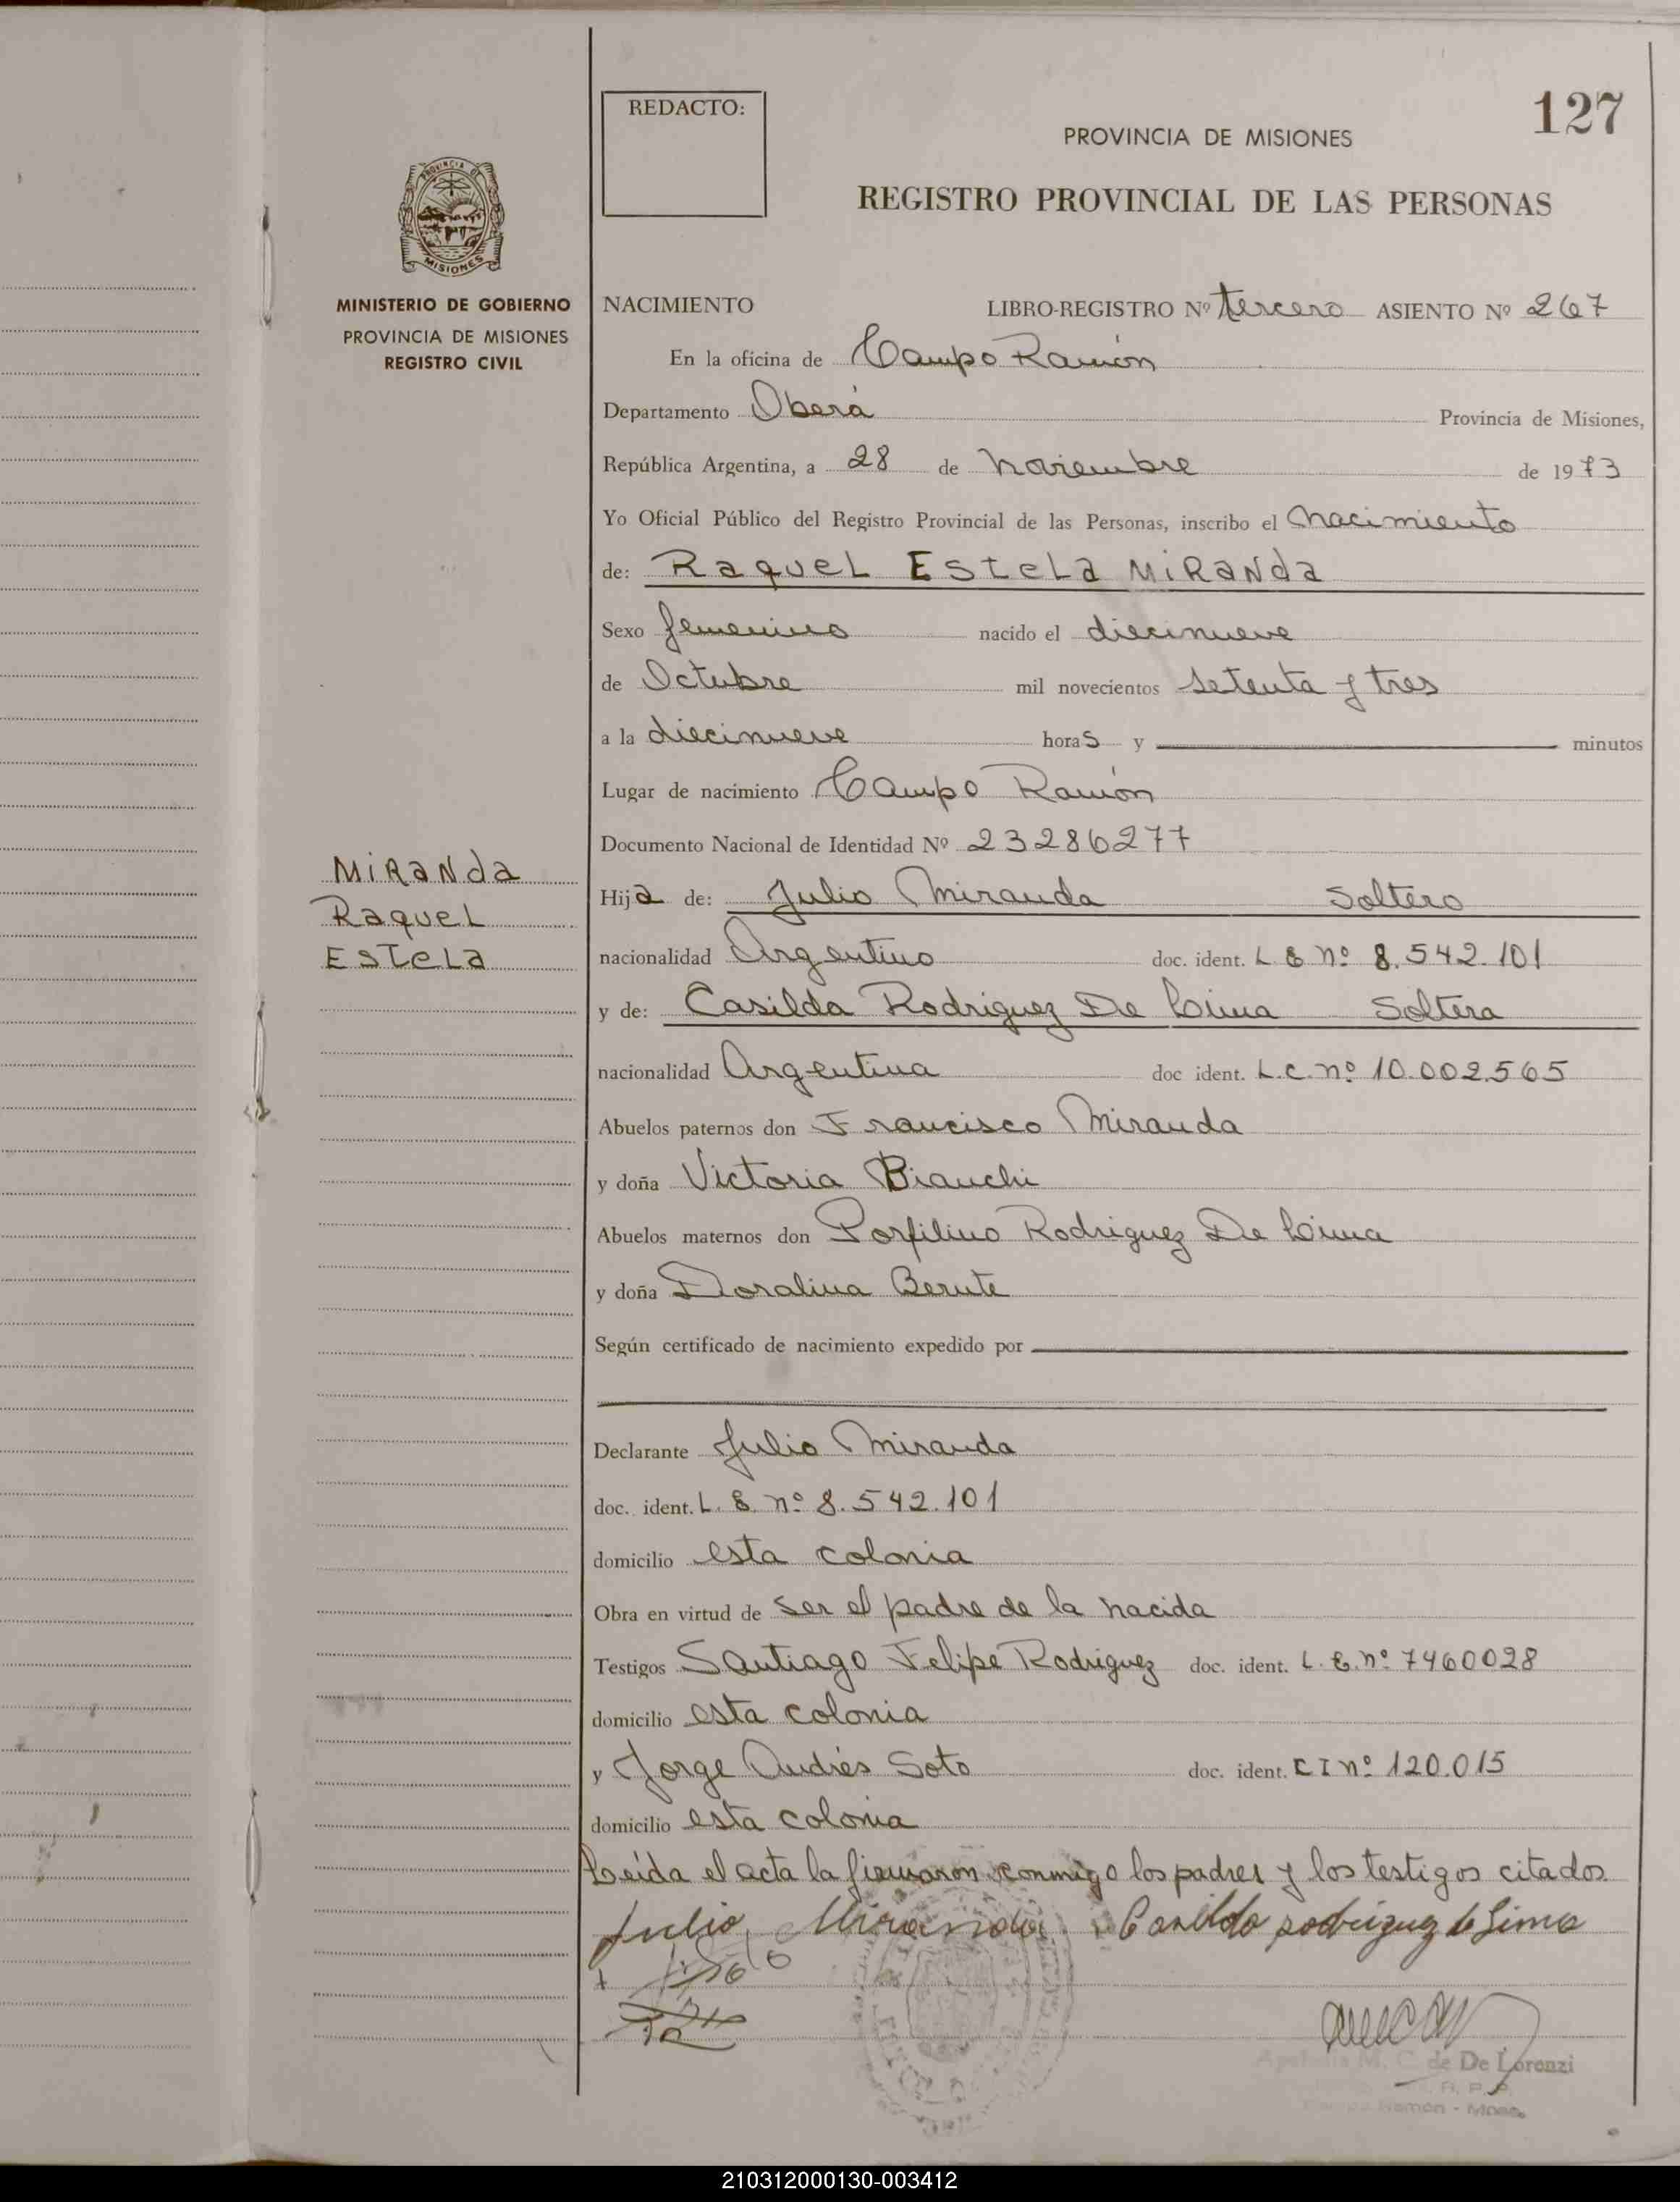 REDACTO:
127
PROVINCIA DE MISIONES
REGISTRO PROVINCIAL DE LAS PERSONAS
PROVINCIA DE
MISIONES
MINISTERIO DE GOBIERNO
PROVINCIA DE MISIONES
REGISTRO CIVIL
NACIMIENTO LIBRO-REGISTRO Nº tercero ASIENTO Nº 267
En la oficina de Campo Ramón
Departamento Oberá Provincia de Misiones,
República Argentina, a 28 de noviembre de 1973
Yo Oficial Público del Registro Provincial de las Personas, inscribo el nacimiento
de: Raquel Estela Miranda
Sexo femenino nacido el diecinueve
de Octubre mil novecientos setenta y tres
a la diecinueve horas y minutos
Lugar de nacimiento Campo Ramón
Documento Nacional de Identidad Nº 23286277
Miranda
Raquel
Estela
Hija de: Julio Miranda Soltero
nacionalidad Argentino doc. ident. L E nº 8.542.101
y de: Casilda Rodriguez De Lima Soltera
nacionalidad Argentina doc ident. L.C. nº 10.002.565
Abuelos paternos don Francisco Miranda
y doña Victoria Bianchi
Abuelos maternos don Porfilino Rodriguez De Lima
y doña Doralina Berute
Según certificado de nacimiento expedido por
Declarante Julio Miranda
doc. ident. L. E. nº 8.542.101
domicilio esta colonia
Obra en virtud de ser el padre de la nacida
Testigos Santiago Felipe Rodriguez doc. ident. L. E. nº 7460028
domicilio esta colonia
y Jorge Andrés Soto doc. ident. C I nº 120.015
domicilio esta colonia
Leída el acta la firmaron conmigo los padres y los testigos citados
Julio Miranda Casilda rodriguez de Lima
M. C. de De Lorenzi
Ramón - Mnes.
210312000130-003412